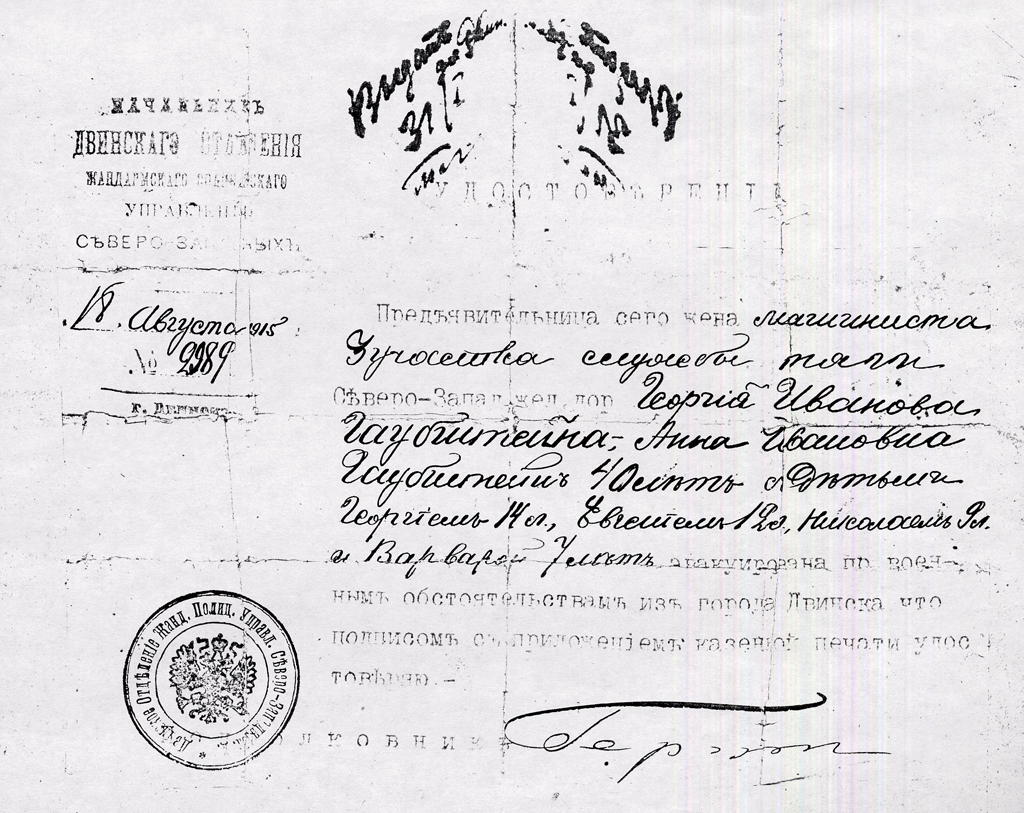 НАЧАЛЬНИКЪ
ДВИНСКАГО ОТДѢЛЕНІЯ
ЖАНДАРМСКАГО
УПРАВЛЕНІЯ
СѢВЕРО-ЗАПАДНЫХЪ
18. Августа 1915
№ 2989
г. Двинскъ
УДОСТОВѢРЕНІЕ
Предъявительница сего жена машиниста
3 участка службы тяги
Сѣверо-Запад.жел.дор Георгія Иванова
Таубштейна, Анна Ивановна
Таубштейнъ 40 лѣтъ с дѣтьми
Георгіемъ 14 л., Евгеніемъ 12 л., Николаемъ 9 л.
и Варварой 7 лѣтъ эвакуирована по воен-
нымъ обстоятельствамъ изъ города Двинска что
подписомъ съ приложеніемъ казенной печати удос
товѣряю.-
Двинское Отдѣленіе Жанд. Полиц. Управл. Сѣверо-Запад.
ПОЛКОВНИКЪ